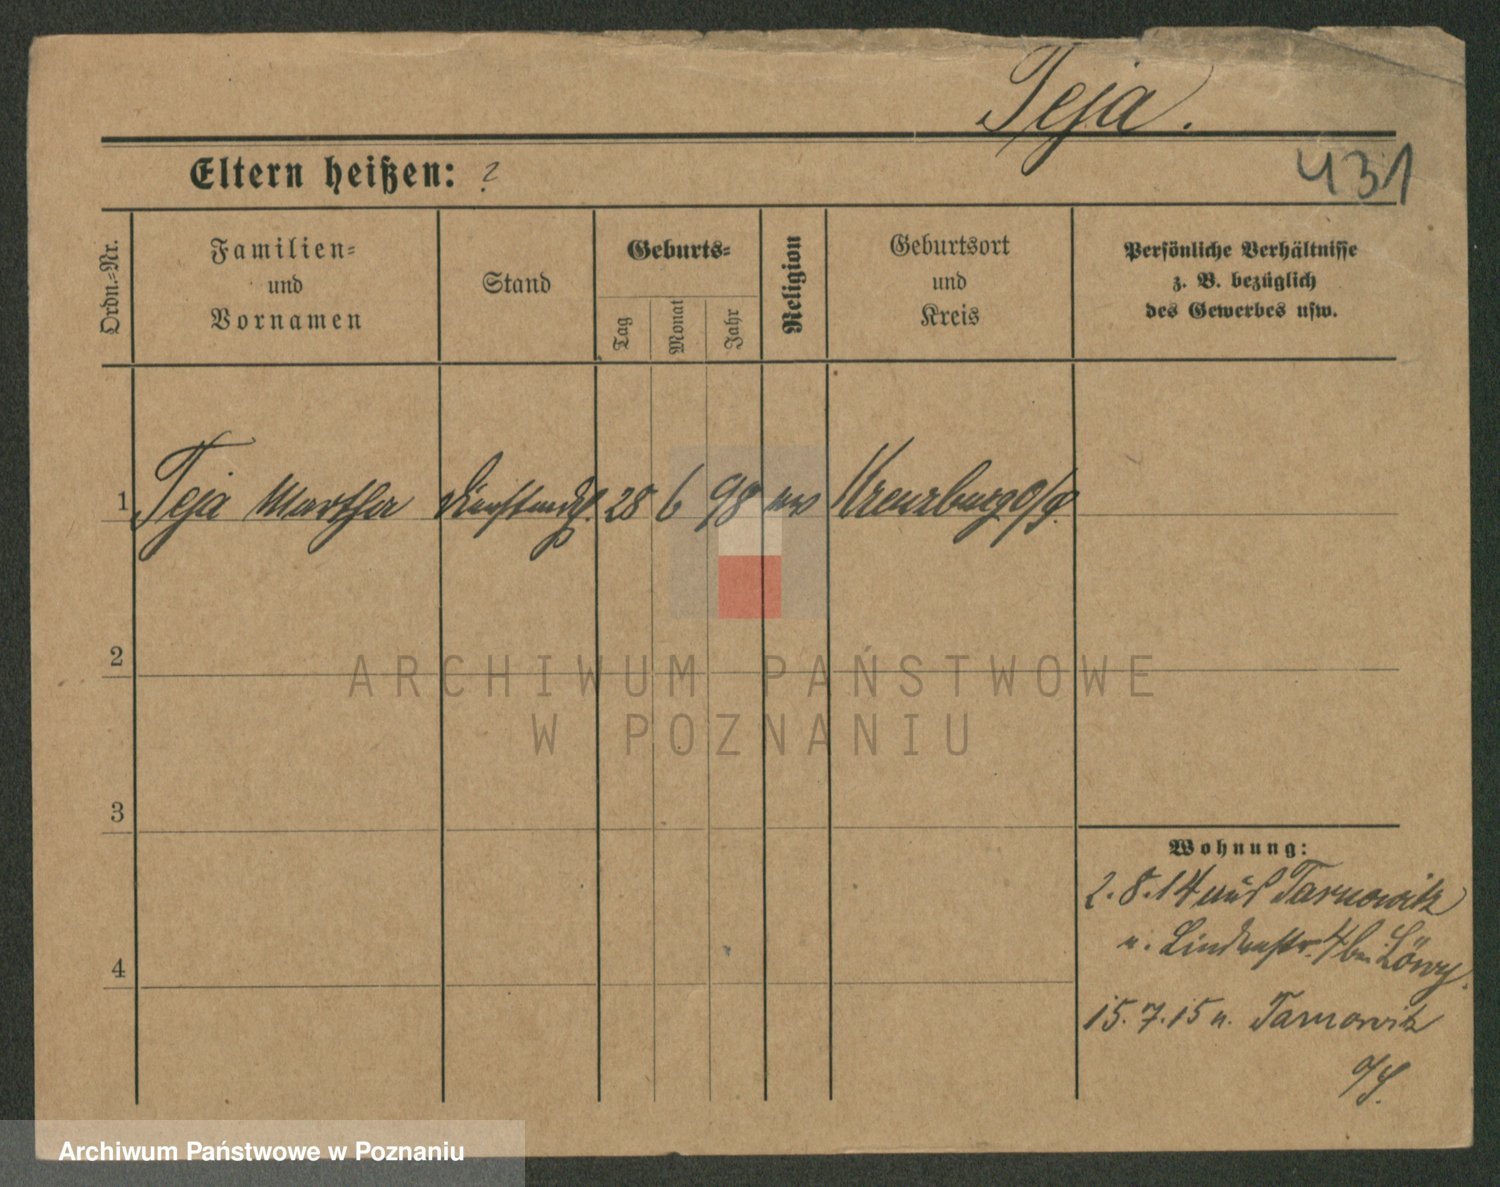 Teja.
431
Eltern heißen: ?
Ordn.=Nr.
Familien=
und
Vornamen
Stand
Geburts=
Tag
Monat
Jahr
Religion
Geburtsort
und
Kreis
Persönliche Verhältnisse
z. B. bezüglich
des Gewerbes usw.
1 Teja Martha 28 6 98 Kreuzburg O/S.
2
3
4
Wohnung:
2.8.14 aus Tarnowitz
n. Lindenstr. 4 bei Löwy.
15.7.15 n. Tarnowitz
O/S.
ARCHIWUM PAŃSTWOWE
W POZNANIU
Archiwum Państwowe w Poznaniu